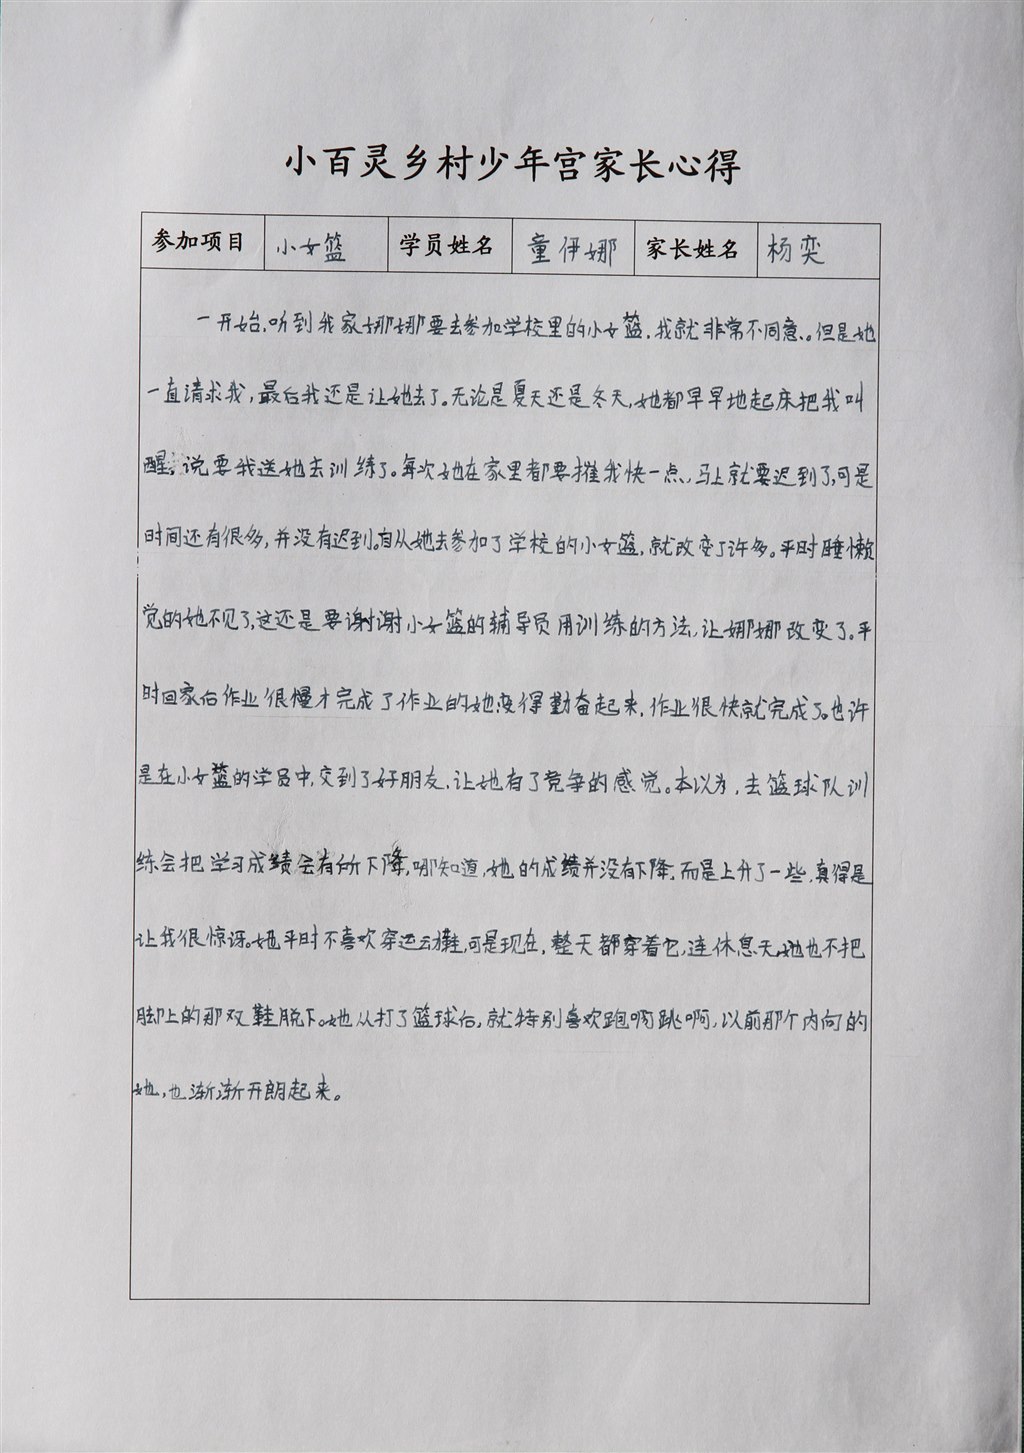 小百灵乡村少年宫家长心得
参加项目 小女篮 学员姓名 童伊娜 家长姓名 杨奕
一开始,听到我家娜娜要去参加学校里的小女篮,我就非常不同意。但是她
一直请求我,最后我还是让她去了。无论是夏天还是冬天,她都早早地起床把我叫
醒,说要我送她去训练了。每次她在家里都要摧我快一点,马上就要迟到了,可是
时间还有很多,并没有迟到。自从她去参加了学校的小女篮,就改变了许多。平时睡懒
觉的她不见了,这还是要谢谢小女篮的辅导员用训练的方法,让娜娜改变了。平
时回家后作业很慢才完成了作业的她,变得勤奋起来,作业很快就完成了。也许
是在小女篮的学员中,交到了好朋友,让她有了竞争的感觉。本以为,去篮球队训
练会把学习成绩会有所下降,哪知道,她的成绩并没有下降,而是上升了一些,真得是
让我很惊讶。她平时不喜欢穿运动鞋,可是现在,整天都穿着它,连休息天,她也不把
脚上的那双鞋脱下。她从打了篮球后,就特别喜欢跑啊跳啊,以前那个内向的
她,也渐渐开朗起来。